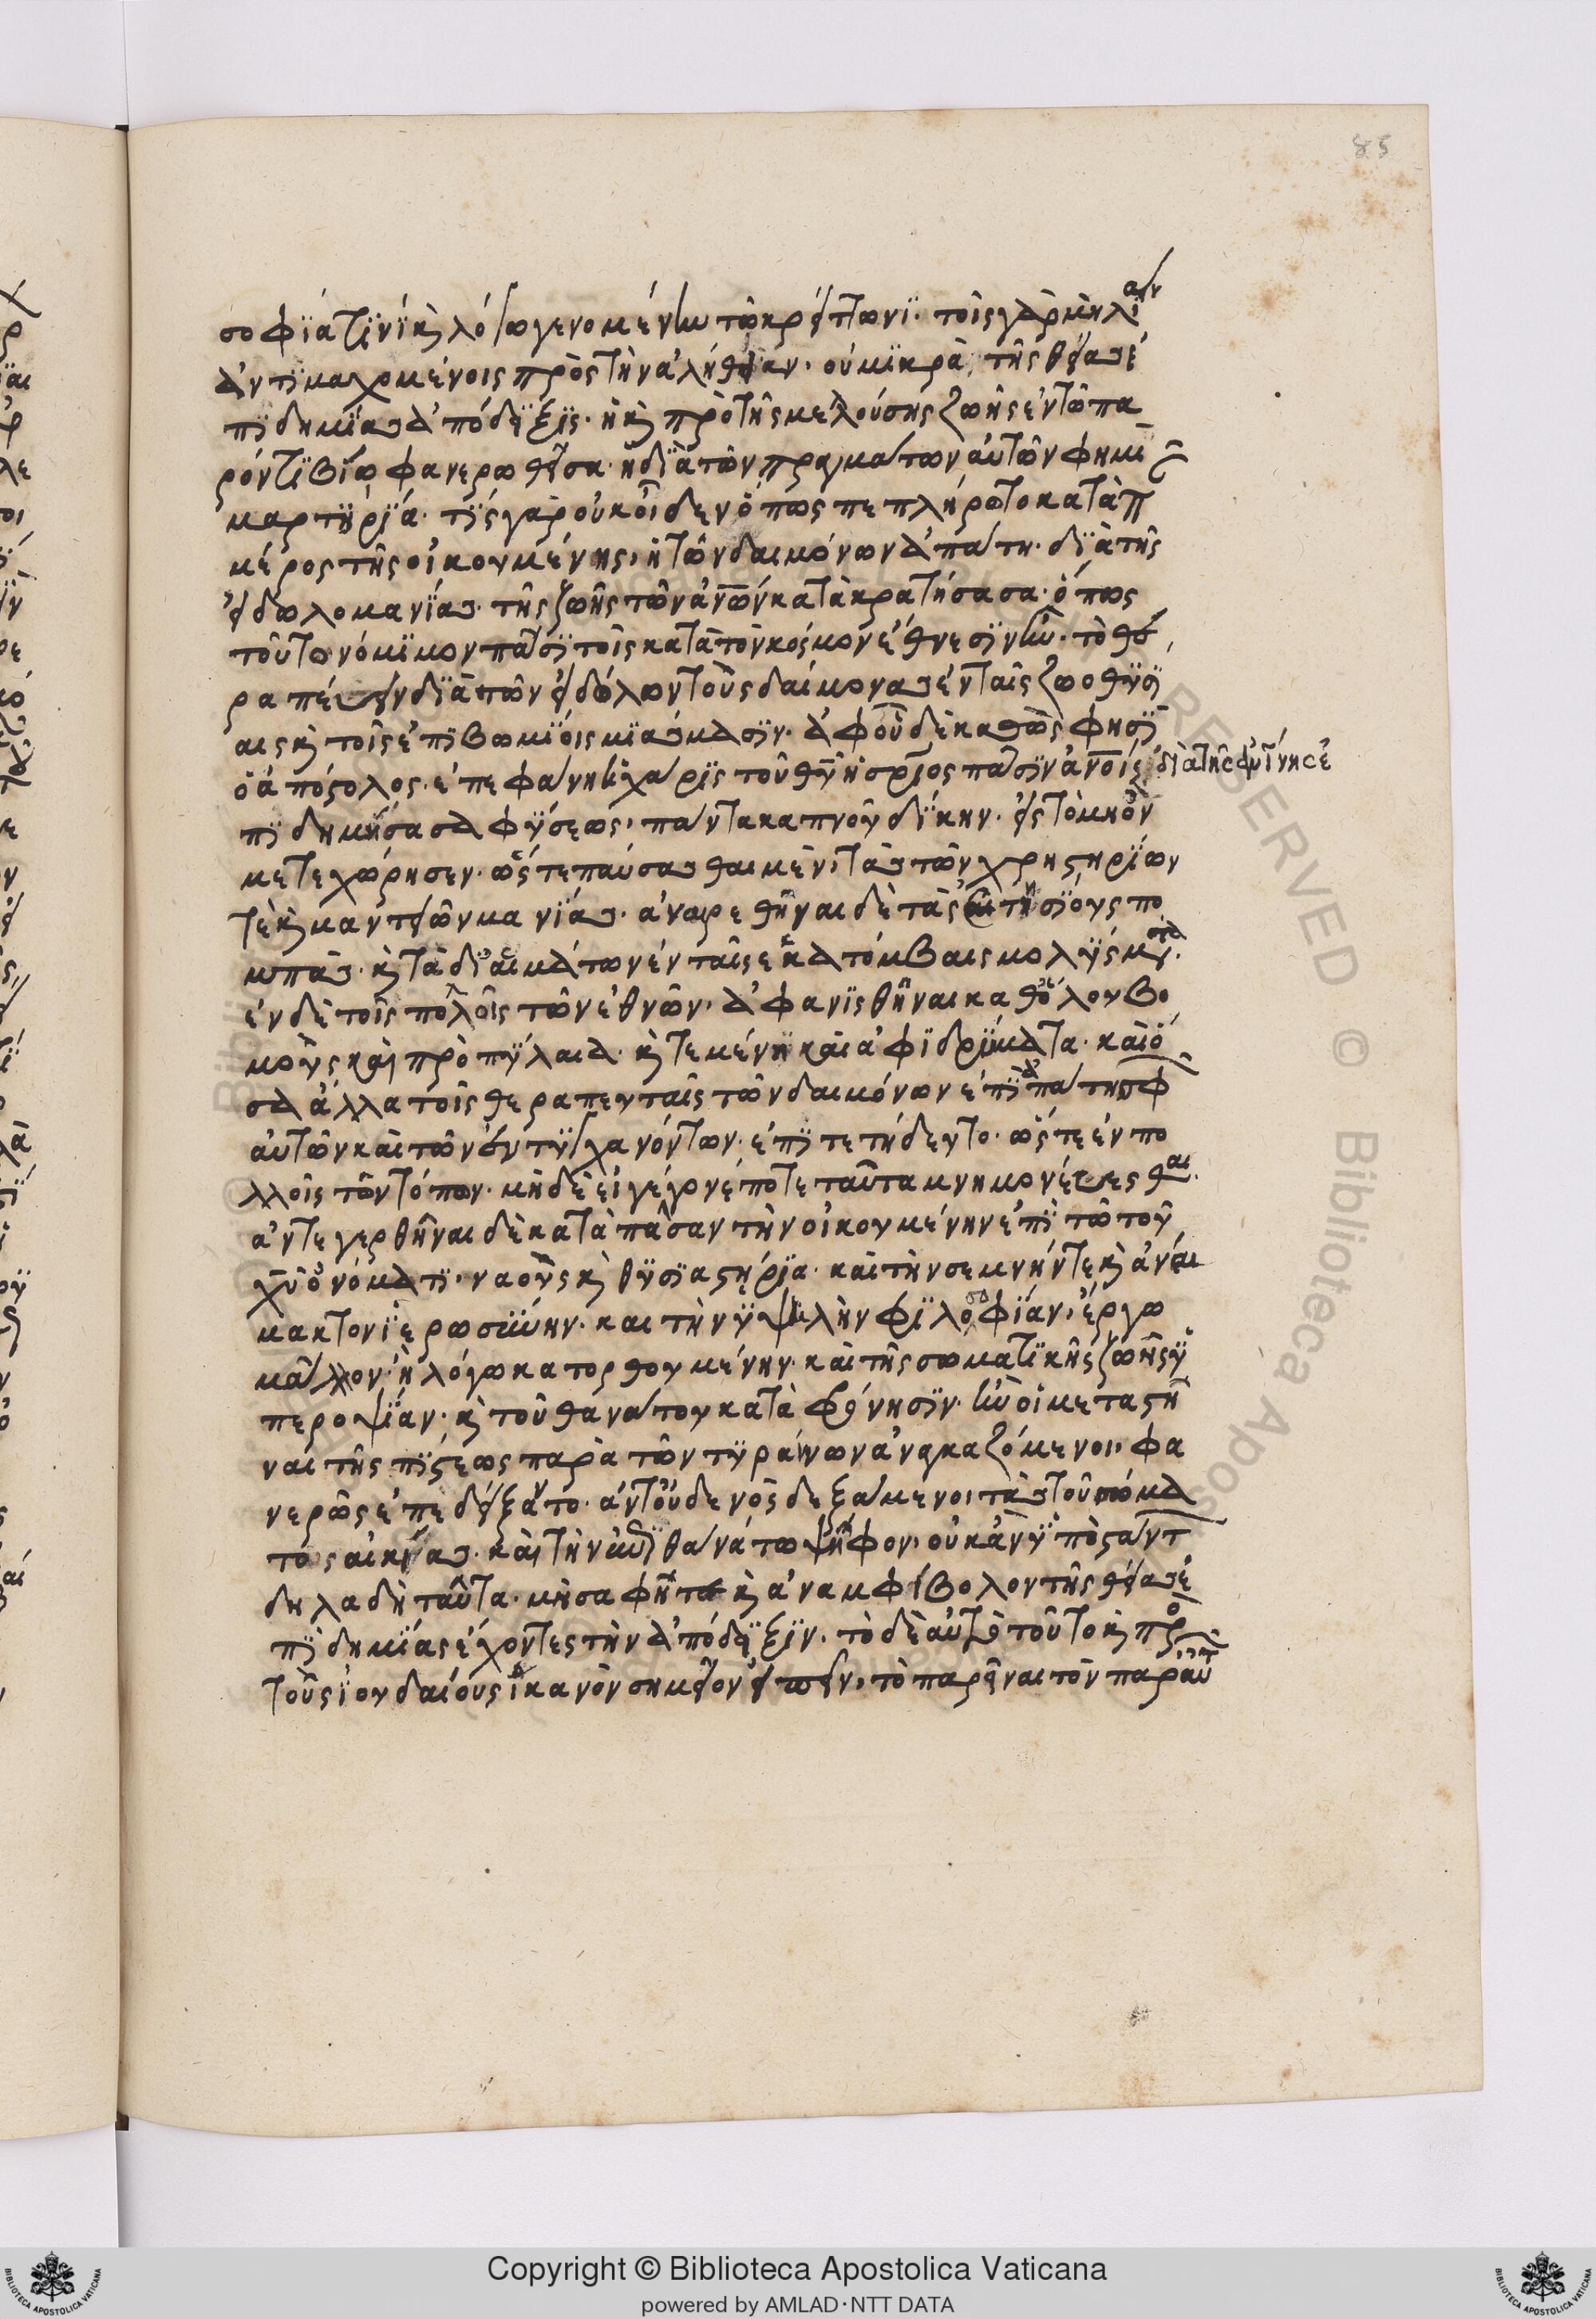 85
σοφία τϊνὶ καὶ λόγω γενομένην τῶ κρείττωνι. τοῖς γὰρ μὴ λίαν
ἀντϊμαχομένοις πρὸς τὴν ἀλήθειαν. οὐ μϊκρὰ τῆς θείας ἐ
πϊδημΐας ἀπόδειξϊς. ἡ καὶ πρὸ τῆς μελλούσης ζωῆς ἐν τῶ πα
ρόντϊ βΐω φανερωθεῖσα. ἡ δϊὰ τῶν πραγμάτων αὐτῶν φημὶ
μαρτϋρΐα. τΐς γὰρ οὐκ οἶδεν ὅπως πεπλήρωτο κατὰ π
μέρος τῆς οἰκουμένης, ἡ τῶν δαιμόνων ἀπάτη. δϊὰ τῆς
εἰδωλομανΐας. τῆς ζωῆς τῶν ἀνων κατακρατήσασα. ὅπως
τοῦτο νόμϊμον πᾶσϊ τοῖς κατὰ τὸν κόσμον ἔθνεσϊν ἦν. τὸ θε
ραπεύειν δϊὰ τῶν εἰδώλων τοὺς δαίμονας ἐν ταῖς ζωοθϋσΐ
αις καὶ τοῖς ἐπϊβωμΐοις μϊάσμασϊν. ἀφ οὗ δὲ καθὼς φησϊν
ὁ ἀπόστολος. ἐπεφάνη ἡ χάρϊς τοῦ θυ ἡ σρϊος πᾶσϊν ἀνοις διὰ τῆς ἀνΐνης ἐ
πϊδημήσασα φϋσεως, πάντα καπνοῦ δΐκην. εἰς τὸ μὴ ὂν
μετεχώρησεν. ὥστε παύσασθαι μὲν, τὰς τῶν χρηστηρΐων
τὲ καὶ μαντειῶν μανΐας. ἀναιρεθῆναι δὲ τὰς ἐτησΐους πο
μπὰς. καὶ τὰ δϊ αἱμάτων ἐν ταῖς ἑκατόμβαις μολϋσματα.
ἐν δὲ τοῖς πολλοῖς τῶν ἐθνῶν. ἀφανϊσθῆναι καθόλου βο
μοὺς καὶ προπϋλαια. καὶ τεμένη καὶ ἀφϊδρΰματα. καὶ ὅ
σα ἄλλα τοῖς θεραπευταῖς τῶν δαιμόνων ἐπϊ ἀπάτη σφ
αὐτῶν καὶ τῶν ἐντϋγχανόντων. ἐπϊτετήδευτο. ὥστε ἐν πο
λλοῖς τῶν τόπων. μὴ δὲ εἰ γέγονέ ποτε ταῦτα μνημονεύεσθαι.
ἀντεγερθῆναι δὲ κατὰ πᾶσαν τὴν οἰκουμένην ἐπϊ τῶ τοῦ
χυ ὀνόματϊ, ναοὺς καὶ θϋσϊαστήρϊα. καὶ τὴν σεμνήν τε καὶ ἀναί
μακτον ϊερωσϋνην. καὶ τὴν ϋψηλὴν φϊλοσοφΐαν, ἔργω
μᾶλλον. ἢ λόγω κατορθουμένην. καὶ τῆς σωματϊκῆς ζωῆς ϋ
περοψΐαν. καὶ τοῦ θανάτου καταφρόνησϊν. ἣν οἱ μεταστῆ
ναι τῆς πΐστεως παρὰ τῶν τϋράννων ἀναγκαζόμενοι, φα
νερῶς ἐπεδείξαντο. ἀντ οὐδενὸς δεξάμενοι τὰς τοῦ σώμα
τος αἰκΐας. καὶ τὴν ἐπϊ θανάτω ψῆφον, οὐκ ἂν ϋποστάντ
δηλαδὴ ταῦτα. μὴ σαφῆ τε καὶ ἀναμφίβολον τῆς θείας ἐ
πϊδημΐας ἔχοντες τὴν ἀπόδειξϊν. τὸ δὲ αὐτὸ τοῦτο καὶ πρὸ
τοὺς ϊουδαίους ϊκανὸν σημεῖον εἰπεῖν, τὸ παρεῖναι τὸν παρ αὐτ